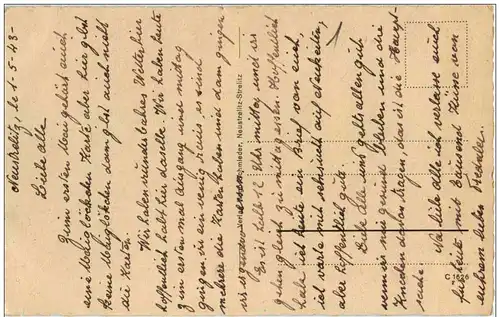 Neustrelitz, d. 1-5-43-
Liebe alle.
Zum ersten Mai gehört auch
eine Maiglöckchen Karte aber hier gibt
keine Maiglöckchen dann gibt auch nicht
die Karten.
Wir haben wunderbares Wetter hier
hoffentlich habt ihr dasselbe. Wir haben heute
zum ersten mal Ausgang und mittag
gingen wir ein wenig raus, es sind
mehrere die Karten haben und dann gingen
wir irgendwo essen.
Es ist halb 12 Uhr mittag und wir
gehen gleich zu mittag essen. Hoffentlich
habe ich heute ein Brief von euch,
ich warte mit sehnsucht auf Neuheiten,
aber hoffentlich gute
Liebe alle uns geht's allen gut
wenn wir nur gesund bleiben und die
Knochen davon tragen, das ist die Haupt-
sache.
Na liebe alle ich verlasse euch
für heute mit tausend Küsse von
eurem lieben
Verlag Schmieder, Neustrelitz-Strelitz
C 1626